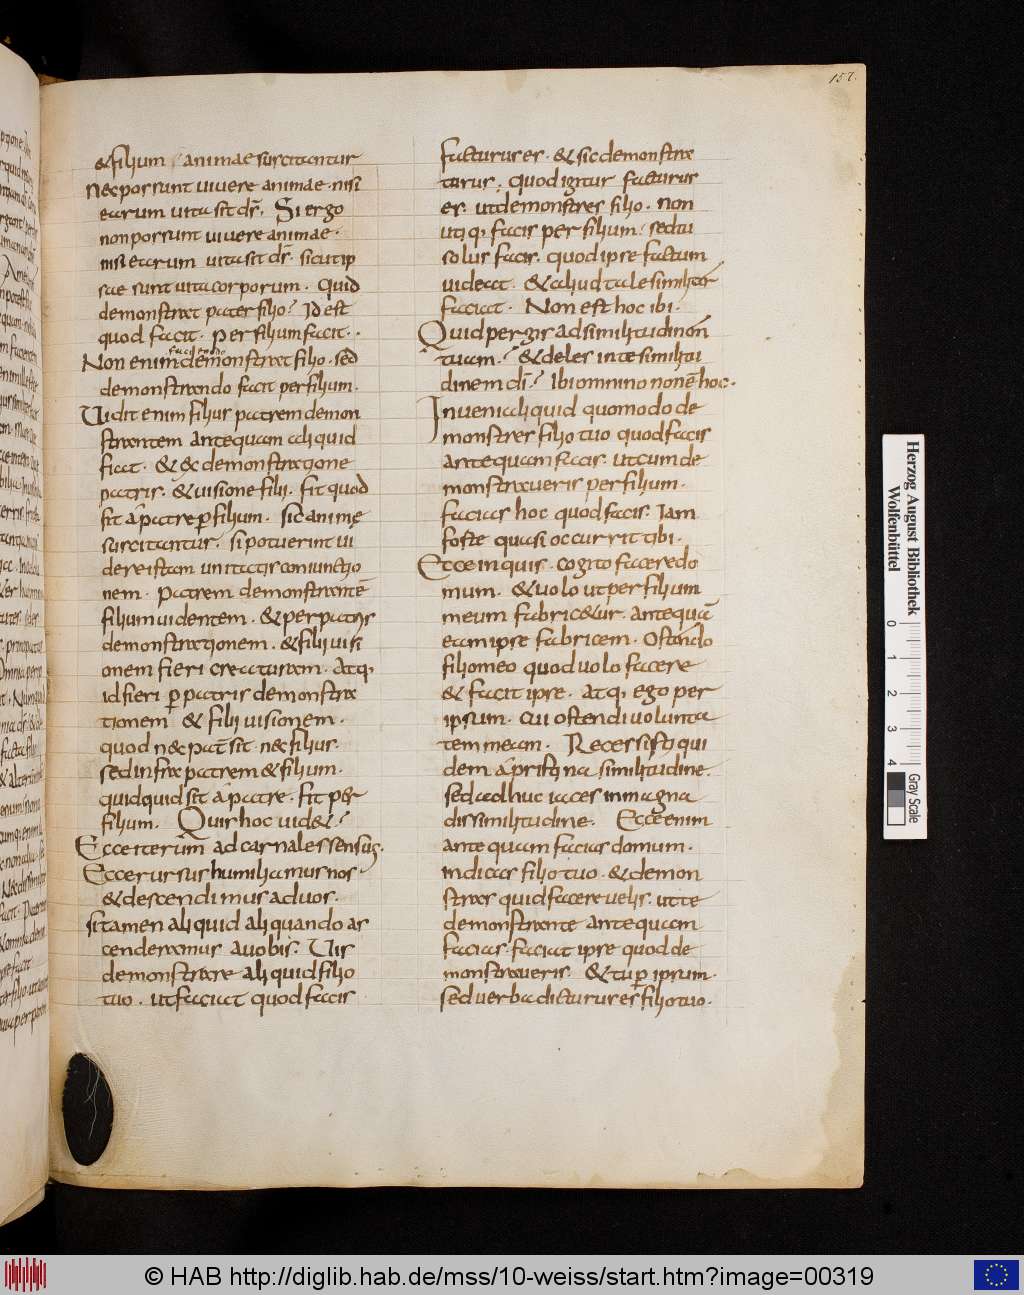 157.
&filium animae suscitantur
Nec possunt vivere animae. nisi
earum vita sit ds̄. Si ergo
non possunt vivere animae.
nisi earum vita sit ds̄. sicut ip
sae sunt vita corporum. Quid
demonstrat pater filio? Id est
quod facit. per filium facit.
Non enim demonstrat filio. sed
demonstrando facit per filium.
Vidit enim filius patrem demon
strantem antequam aliquid
fiat. & ex demonstratione
patris. & visione filii. fit quod
fit a patre ꝑ filium. sic animę
suscitantur. si potuerint vi
dere istam unitatis coniunctio
nem. Patrem demonstrantē
filium videntem. & per patris
demonstrationem. & filii visi
onem fieri creaturam. Atq;
id fieri ꝑ patris demonstra
tionem & filii visionem.
quod nec pat̄ sit. nec filius.
sed infra patrem & filium.
quidquid fit a patre. fit per
filium. Quis hoc vid&?
Ecce iterum ad carnales sensus.
Ecce rursus humiliamus nos.
& descendimus ad vos.
si tamen aliquid aliquando as
cenderamus a vobis. Vis
demonstrare aliquid filio
tuo. ut faciat quod facis
facturus es. & sic demonstra
turus. quod igitur facturus
es. ut demonstres filio. non
utiq; facis per filium. sed tu
solus facis. quod ipse factum
videat. & aliud tale similiter
faciat. Non est hoc ibi.
Quid pergis ad similitudinē
tuam? & deles in te similitu
dinem dī? Ibi omnino non ē hoc.
Inveni aliquid quomodo de
monstres filio tuo quod facis
antequam facias. ut cum de
monstraveris per filium.
facias hoc quod facis. Iam
forte quasi occurrit tibi.
Ecce inquis. cogito facere do
mum. & volo ut per filium
meum fabric&ur. antequā
eam ipse fabricem. Ostendo
filio meo quod volo facere
& facit ipse. Atq; ego per
ipsum. cui ostendi volunta
tem meam. Recessisti qui
dem a pristina similitudine.
sed adhuc iaces in magna
dissimilitudine. Ecce enim
antequam facias domum.
indicas filio tuo. & demon
stras quid facere velis. ut te
demonstrante antequam
facias. faciat ipse quod de
monstraveris. & tu ꝑ ipsum.
sed verba dicturus es filio tuo.
Herzog August Bibliothek
Wolfenbüttel
0 1 2 3 4
Gray Scale
© HAB http://diglib.hab.de/mss/10-weiss/start.htm?image=00319